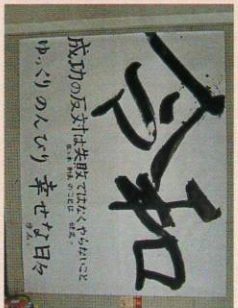 令和
成功の反対は失敗ではなくやらないこと
ゆっくりのんびり幸せな日々